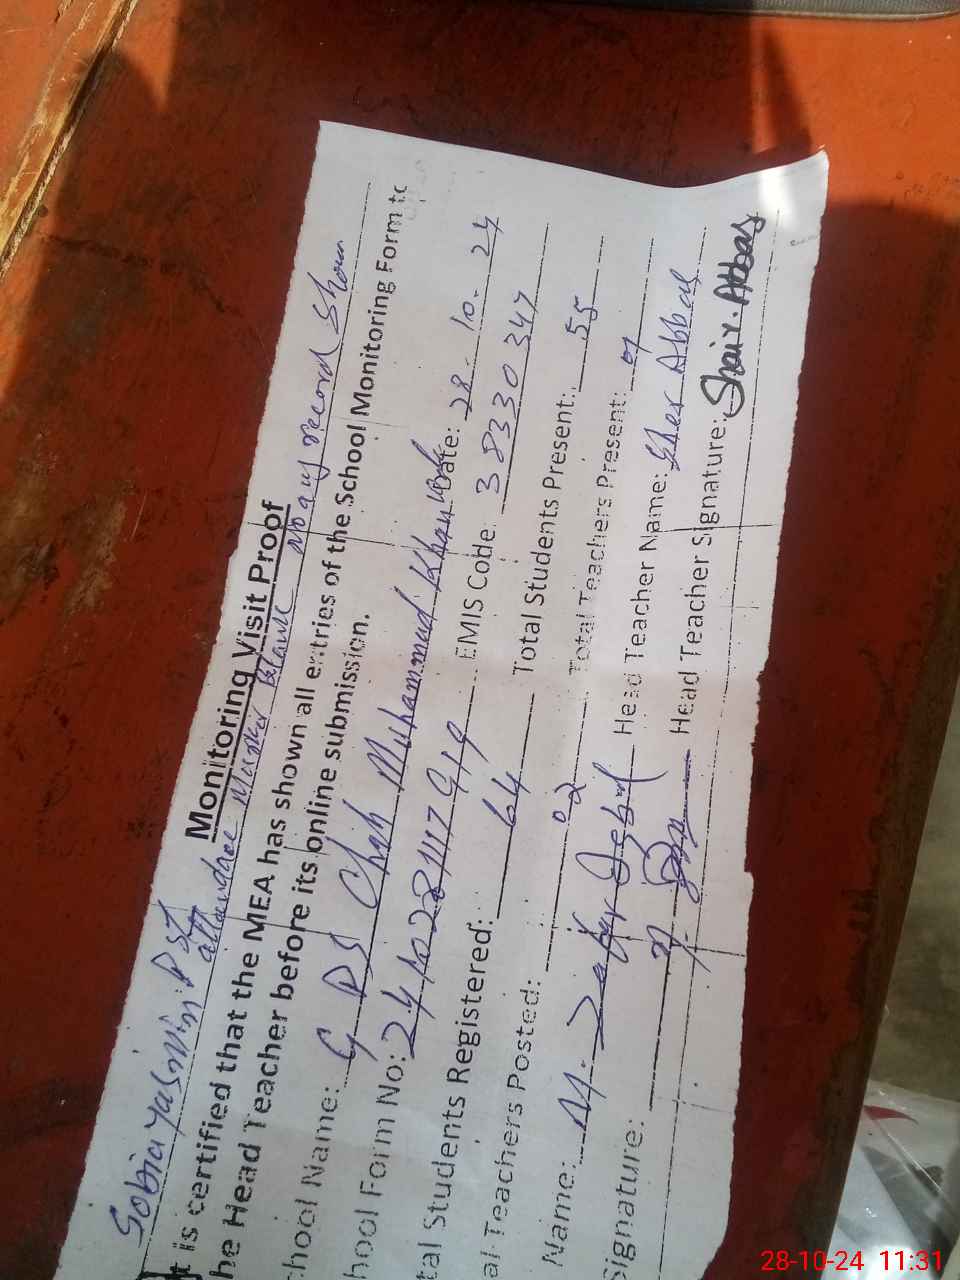 Monitoring Visit Proof
Sobia Yasmin PST attandnce Marker Blank No any record Shown
It is certified that the MEA has shown all entries of the School Monitoring Form to
he Head Teacher before its online submission.
chool Name: G PS Chah Muhammad Khan Date: 28-10-24
hool Form No: EMIS Code: 38330347
tal Students Registered: 64 Total Students Present: 55
al Teachers Posted: 02 Total Teachers Present: 01
Name: M. Zafar Iqbal Head Teacher Name: Sher Abbas
Signature: Head Teacher Signature: Shair. Abbas
28-10-24 11:31